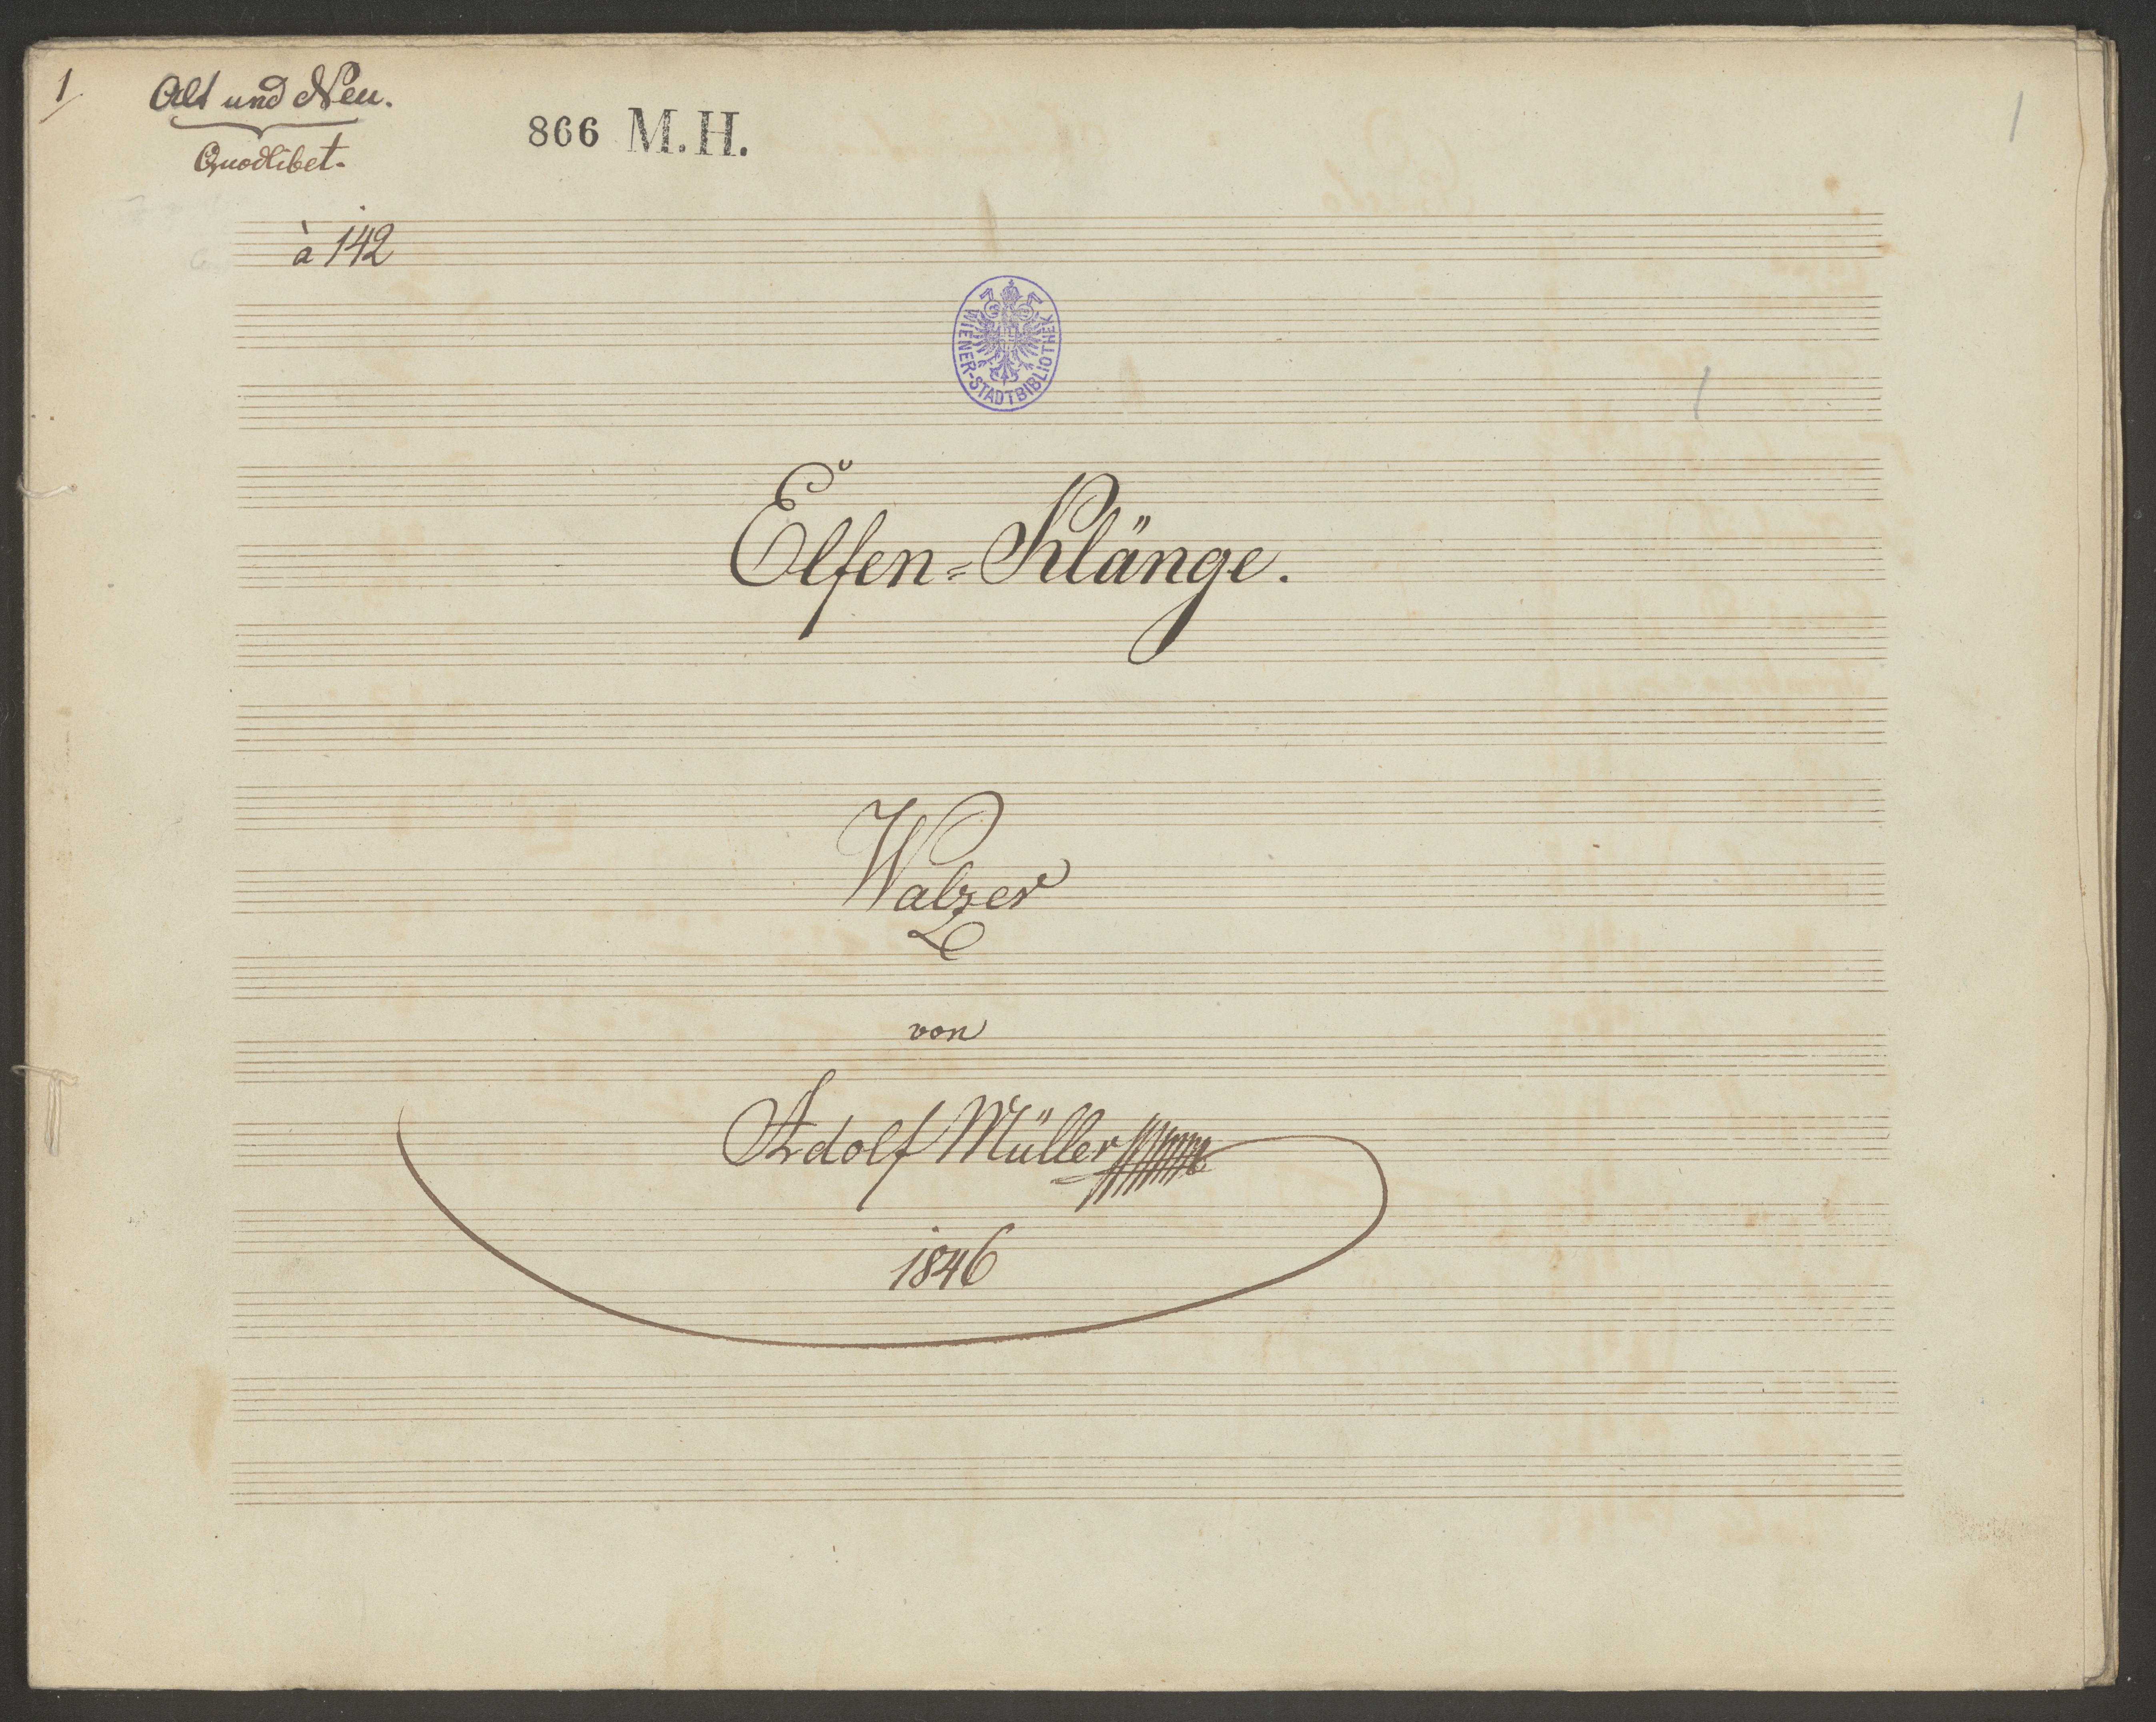 1
Alt und Neu.
Quodlibet.
866 M.H.
1
à 142
WIENER-STADTBIBLIOTHEK
Elfen=Klänge.
Walzer
von
Adolf Müller
1846